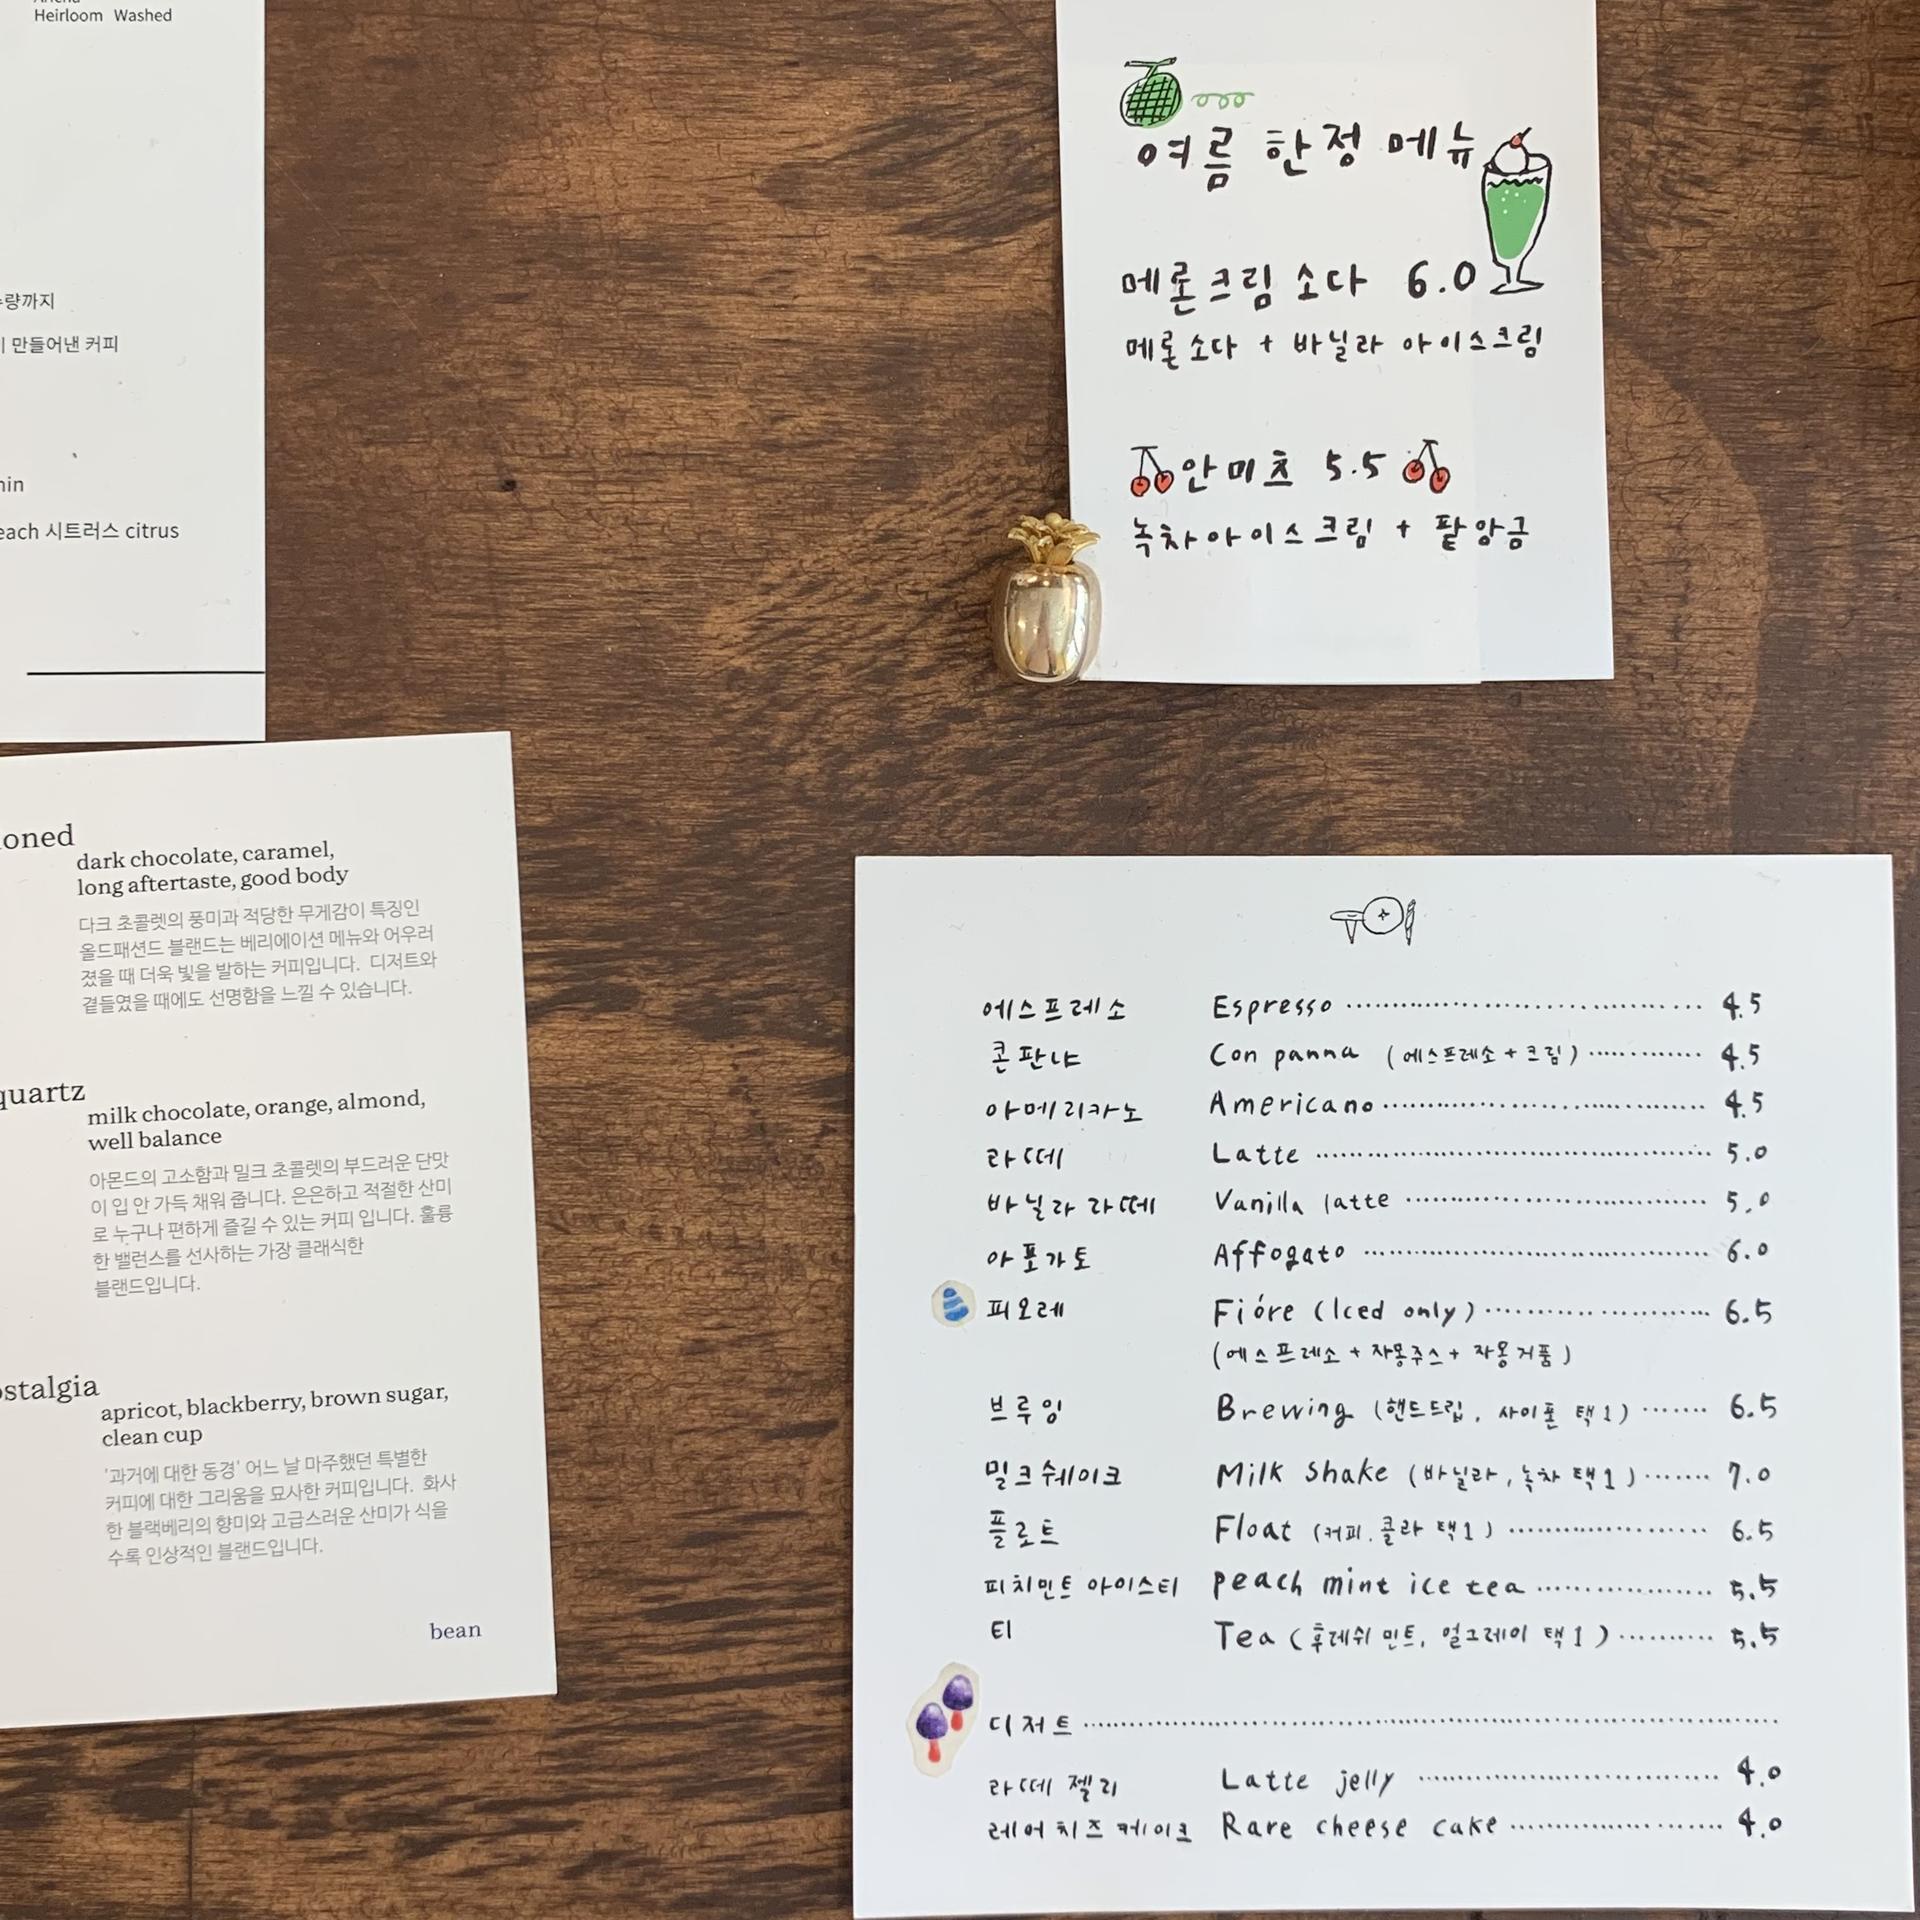 Heirloom Washed
량까지
만들어낸 커피
시트러스 citrus
여름 한정 메뉴
메론크림 소다 6.0
메론소다 + 바닐라 아이스크림
안미츠 5.5
녹차아이스크림 + 팥앙금
dark chocolate, caramel,
long aftertaste, good body
다크 초콜렛의 풍미과 적당한 무게감이 특징인
올드패션드 블랜드는 베리에이션 메뉴와 어우러
졌을 때 더욱 빛을 발하는 커피입니다. 디저트와
곁들였을 때에도 선명함을 느낄 수 있습니다.
quartz
milk chocolate, orange, almond,
well balance
아몬드의 고소함과 밀크 초콜렛의 부드러운 단맛
이 입 안 가득 채워 줍니다. 은은하고 적절한 산미
로 누구나 편하게 즐길 수 있는 커피 입니다. 훌륭
한 밸런스를 선사하는 가장 클래식한
블랜드입니다.
ostalgia
apricot, blackberry, brown sugar,
clean cup
'과거에 대한 동경' 어느 날 마주했던 특별한
커피에 대한 그리움을 묘사한 커피입니다. 화사
한 블랙베리의 향미와 고급스러운 산미가 식을
수록 인상적인 블랜드입니다.
bean
에스프레소 Espresso 4.5
콘판나 Con panna (에스프레소 + 크림) 4.5
아메리카노 Americano 4.5
라떼 Latte 5.0
바닐라 라떼 Vanilla latte 5.0
아포가토 Affogato 6.0
피오레 Fióre (Iced only) 6.5
(에스프레소 + 자몽주스 + 자몽거품)
브루잉 Brewing (핸드드립, 사이폰 택1) 6.5
밀크쉐이크 Milk shake (바닐라, 녹차 택1) 7.0
플로트 Float (커피, 콜라 택1) 6.5
피치민트 아이스티 peach mint ice tea 5.5
티 Tea (후레쉬 민트, 얼그레이 택1) 5.5
디저트
라떼 젤리 Latte jelly 4.0
레어치즈케이크 Rare cheese cake 4.0